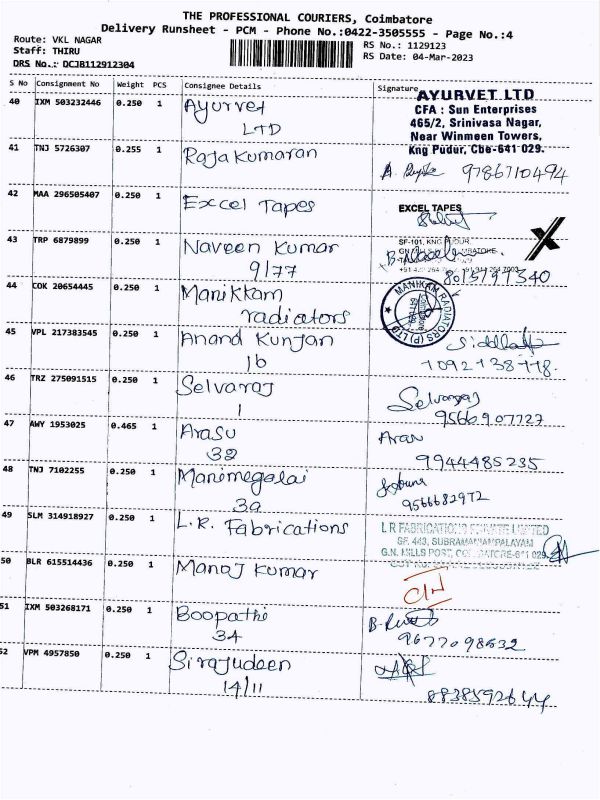 THE PROFESSIONAL COURIERS, Coimbatore
Delivery Runsheet - PCM - Phone No.:0422-3505555 - Page No.:4
Route: VKL NAGAR
Staff: THIRU
DRS No.: DCJB112912304
RS No.: 1129123
RS Date: 04-Mar-2023
S No Consignment No Weight PCS Consignee Details Signature
40 IXM 503232446 0.250 1 Ayurvet
LTD
AYURVET LTD
CFA : Sun Enterprises
465/2, Srinivasa Nagar,
Near Winmeen Towers,
Kng Pudur, Cbe-641 029.
41 TNJ 5726307 0.255 1 Rajakumaran
9786710494
42 MAA 296505407 0.250 1 Excel Tapes
EXCEL TAPES
SF-101, KNG PUDUR,
43 TRP 6879899 0.250 1 Naveen Kumar
9/77
44 COK 20654445 0.250 1 Manikkam
radiators
MANIKAM RADIATORS (P) LTD
45 VPL 217383545 0.250 1 Anand Kunjan
1b
46 TRZ 275091515 0.250 1 Selvaraj
1
Selvaraj
9566907727
47 AWY 1953025 0.465 1 Arasu
32
9944485235
48 TNJ 7102255 0.250 1 Manimegalai
3a
9566682972
49 SLM 314918927 0.250 1 L.R. Fabrications
L R FABRICATIONS PRIVATE LIMITED
SF. 443, SUBRAMANIAMPALAYAM
G.N. MILLS POST, COIMBATORE-641 029
50 BLR 615514436 0.250 1 Manoj Kumar
51 IXM 503268171 0.250 1 Boopathi
34
9677098632
52 VPM 4957850 0.250 1 Sirajudeen
14/11
8838592644